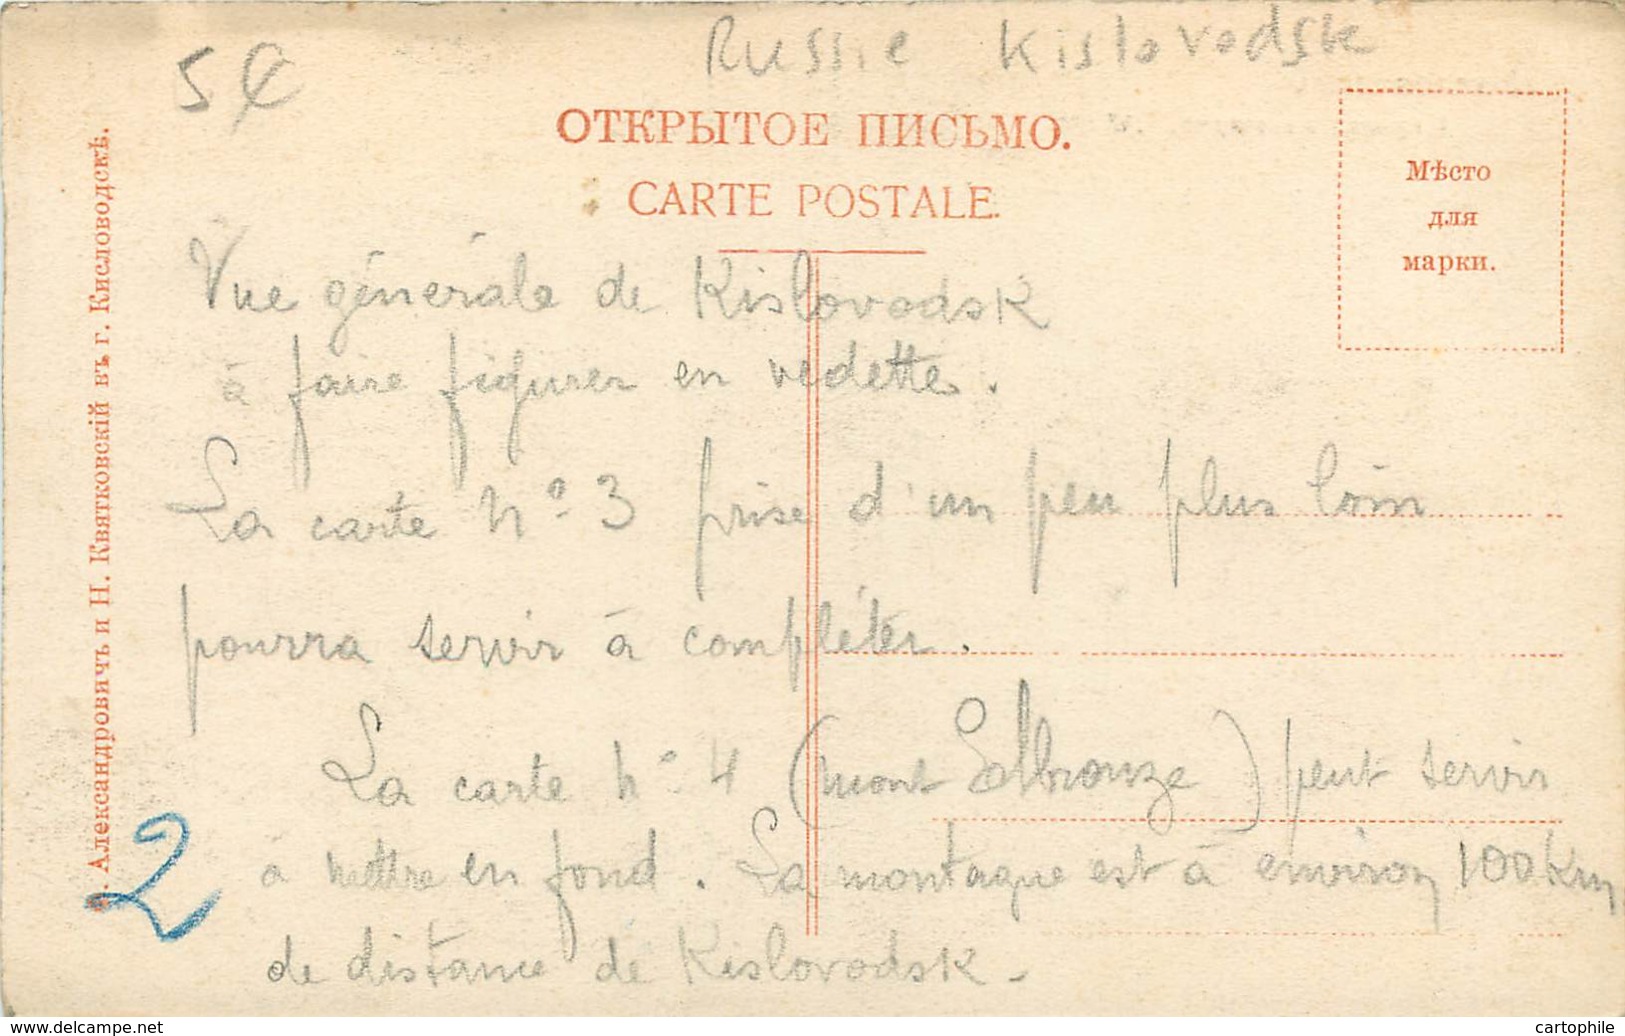 5€
Russie Kislovodsk
ОТКРЫТОЕ ПИСЬМО.
CARTE POSTALE.
Мѣсто
для
марки.
Александровичъ и Н. Квятковскій въ г. Кисловодскѣ.
Vue générale de Kislovodsk
à faire figurer en vedette.
La carte n° 3 prise d'un peu plus loin
pourra servir à compléter.
La carte n° 4 (mont Elbrouze) peut servir
à mettre en fond. La montagne est à environ 100 Km
de distance de Kislovodsk -
2
www.delcampe.net
cartophile